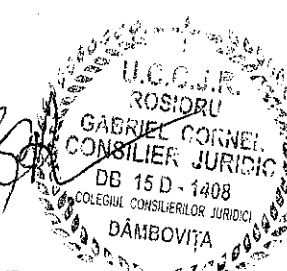 U.C.C.J.R.
ROSIORU
GABRIEL CORNEL
CONSILIER JURIDIC
DB 15 D - 1408
COLEGIUL CONSILIERILOR JURIDICI
DÂMBOVIȚA